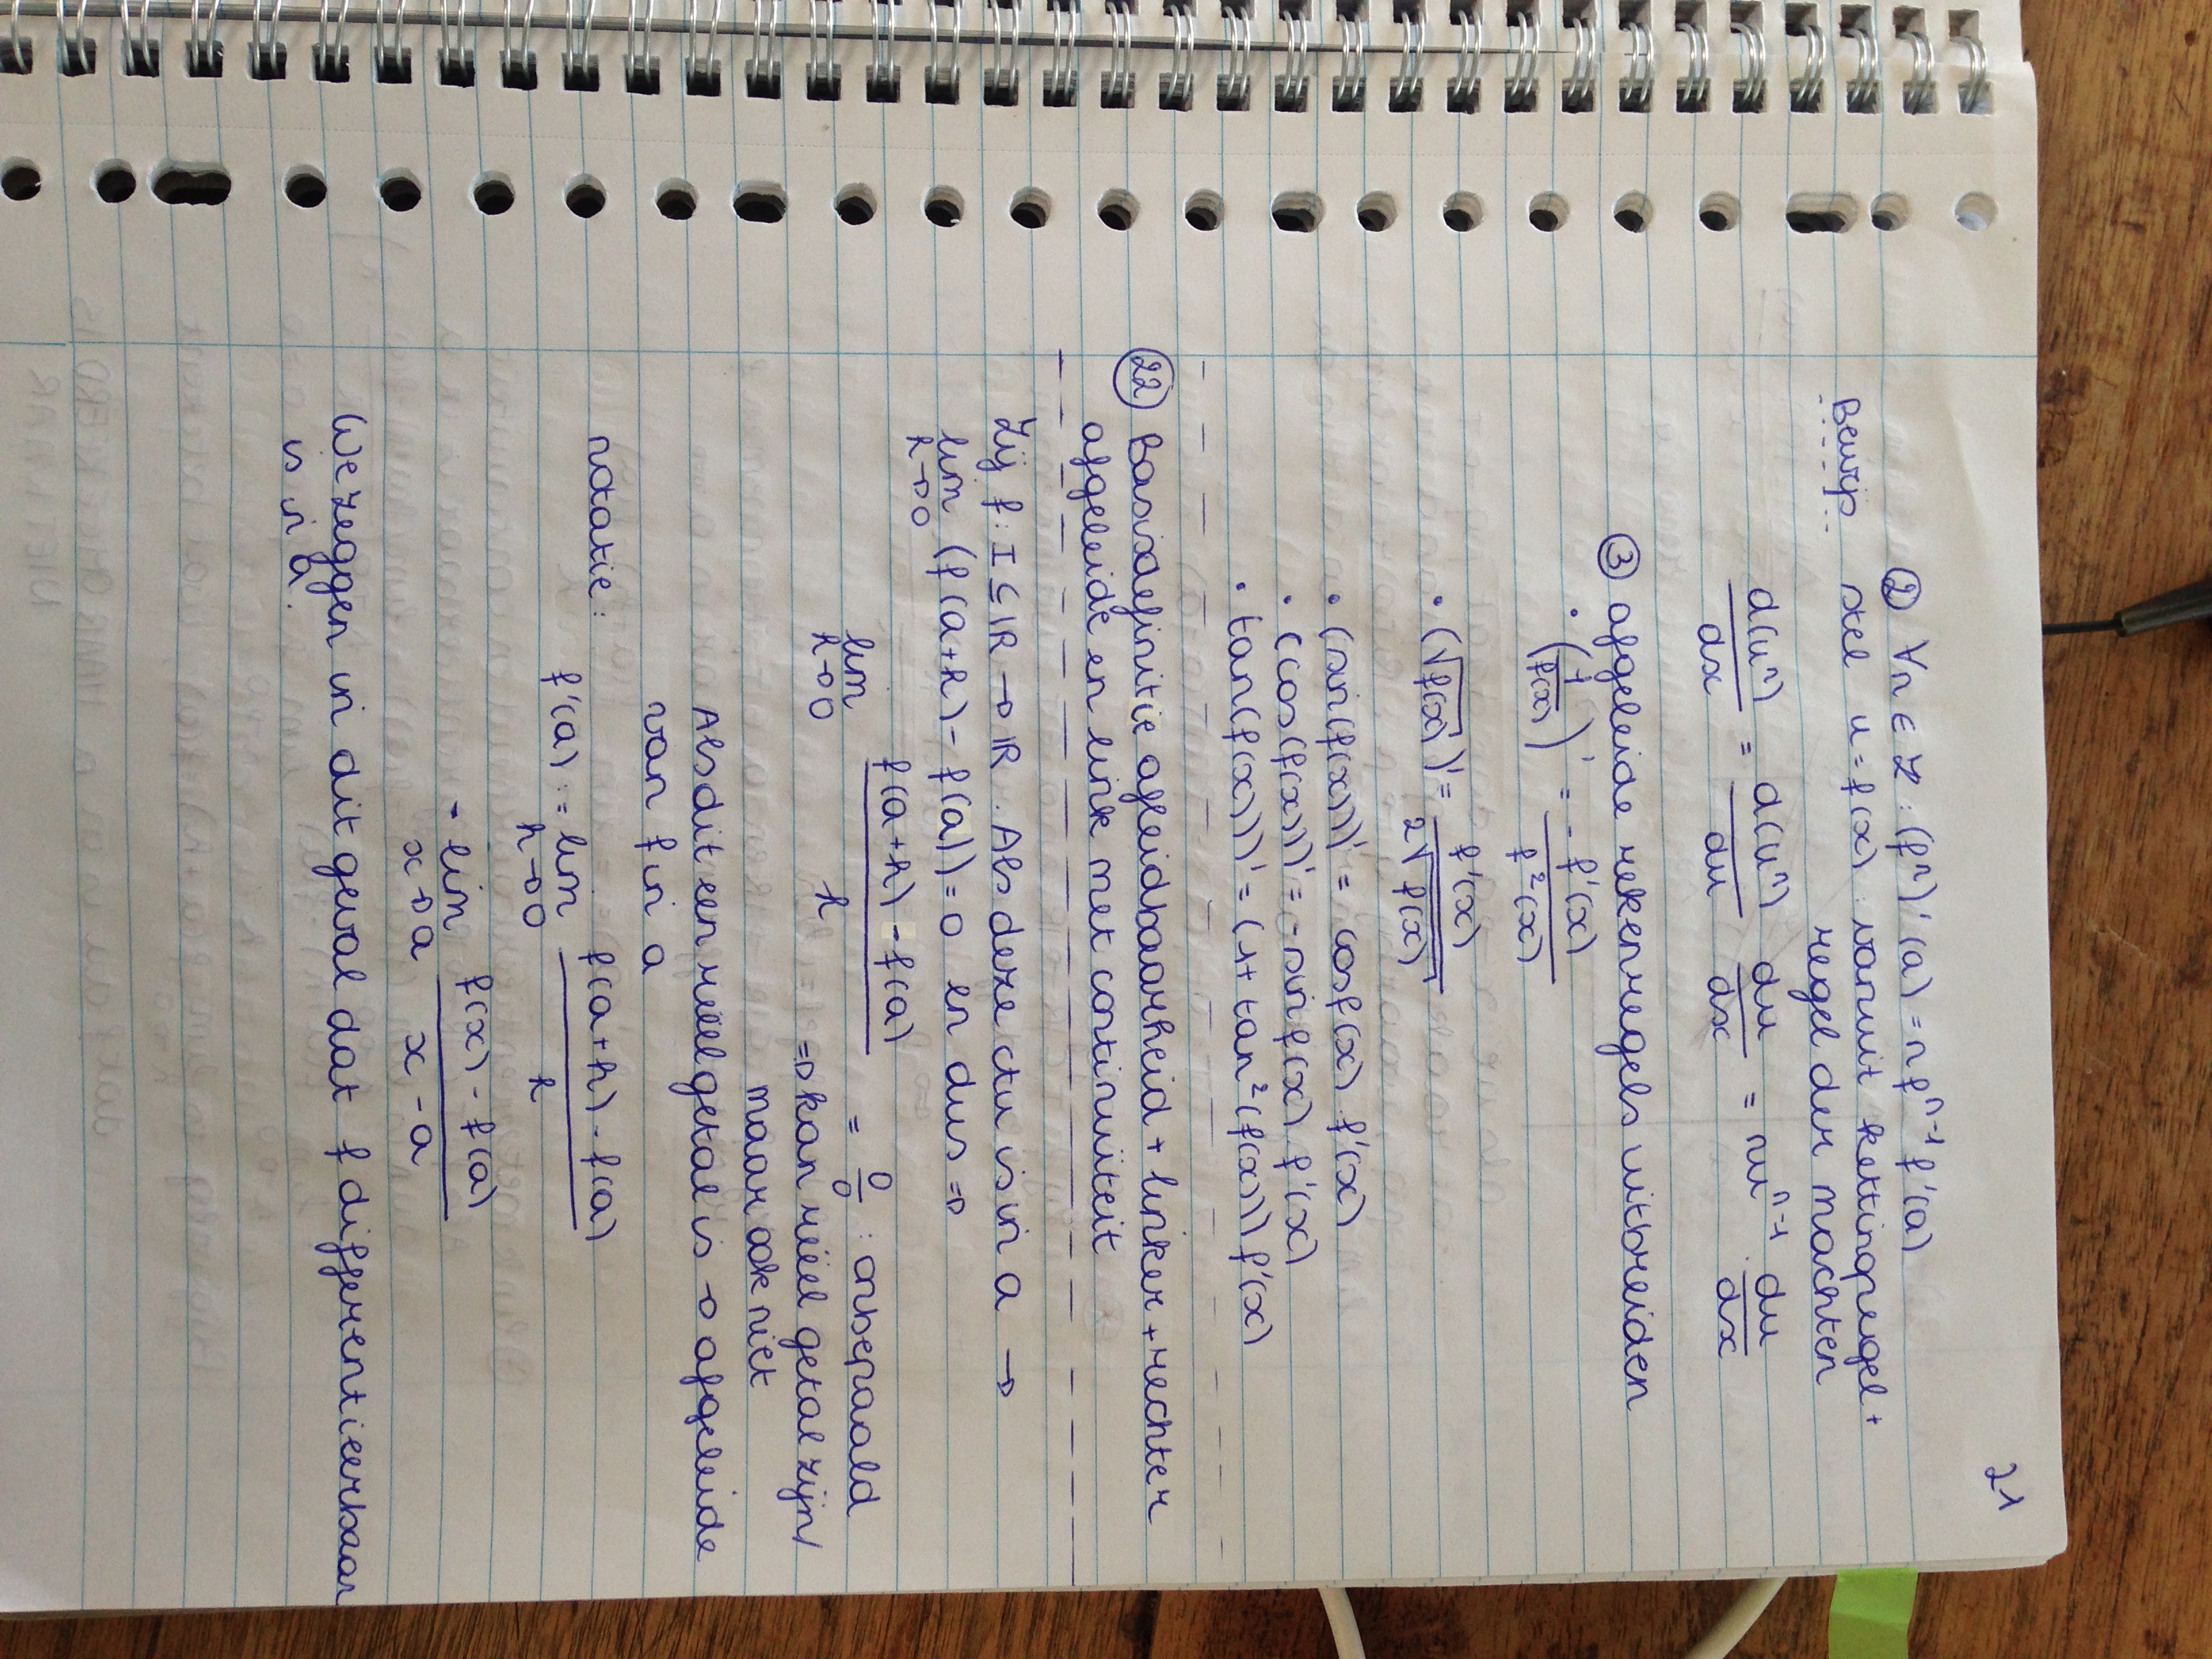 21
② ∀n ∈ ℤ : (fⁿ)'(a) = n fⁿ⁻¹ f'(a)
Bewijs stel u = f(x) : vanuit kettingregel +
regel der machten
d(uⁿ)/dx = d(uⁿ)/du du/dx = nuⁿ⁻¹ . du/dx
③ afgeleide rekenregels uitbreiden
• (1/f(x))' = - f'(x)/f²(x)
• (√f(x))' = f'(x)/2√f(x)
• (sin(f(x)))' = cosf(x) . f'(x)
• (cos(f(x)))' = -sin f(x) . f'(x)
• tan(f(x)))' = (1+ tan²(f(x))) f'(x)
㉒ Basisdefinitie afleidbaarheid + linker + rechter
afgeleide en link met continuïteit
Zij f: I ⊆ ℝ → ℝ . Als deze ctu is in a →
lim h→0 (f(a+h) - f(a)) = 0 en dus ⇒
lim h→0 f(a+h) - f(a)/h = 0/0 : onbepaald
⇒ kan reëel getal zijn/
maar ook niet
Als dit een reëel getal is → afgeleide
van f in a
notatie:
f'(a) := lim h→0 f(a+h) - f(a)/h
- lim x→a f(x) - f(a)/x - a
We zeggen in dit geval dat f differentieerbaar
is in a.